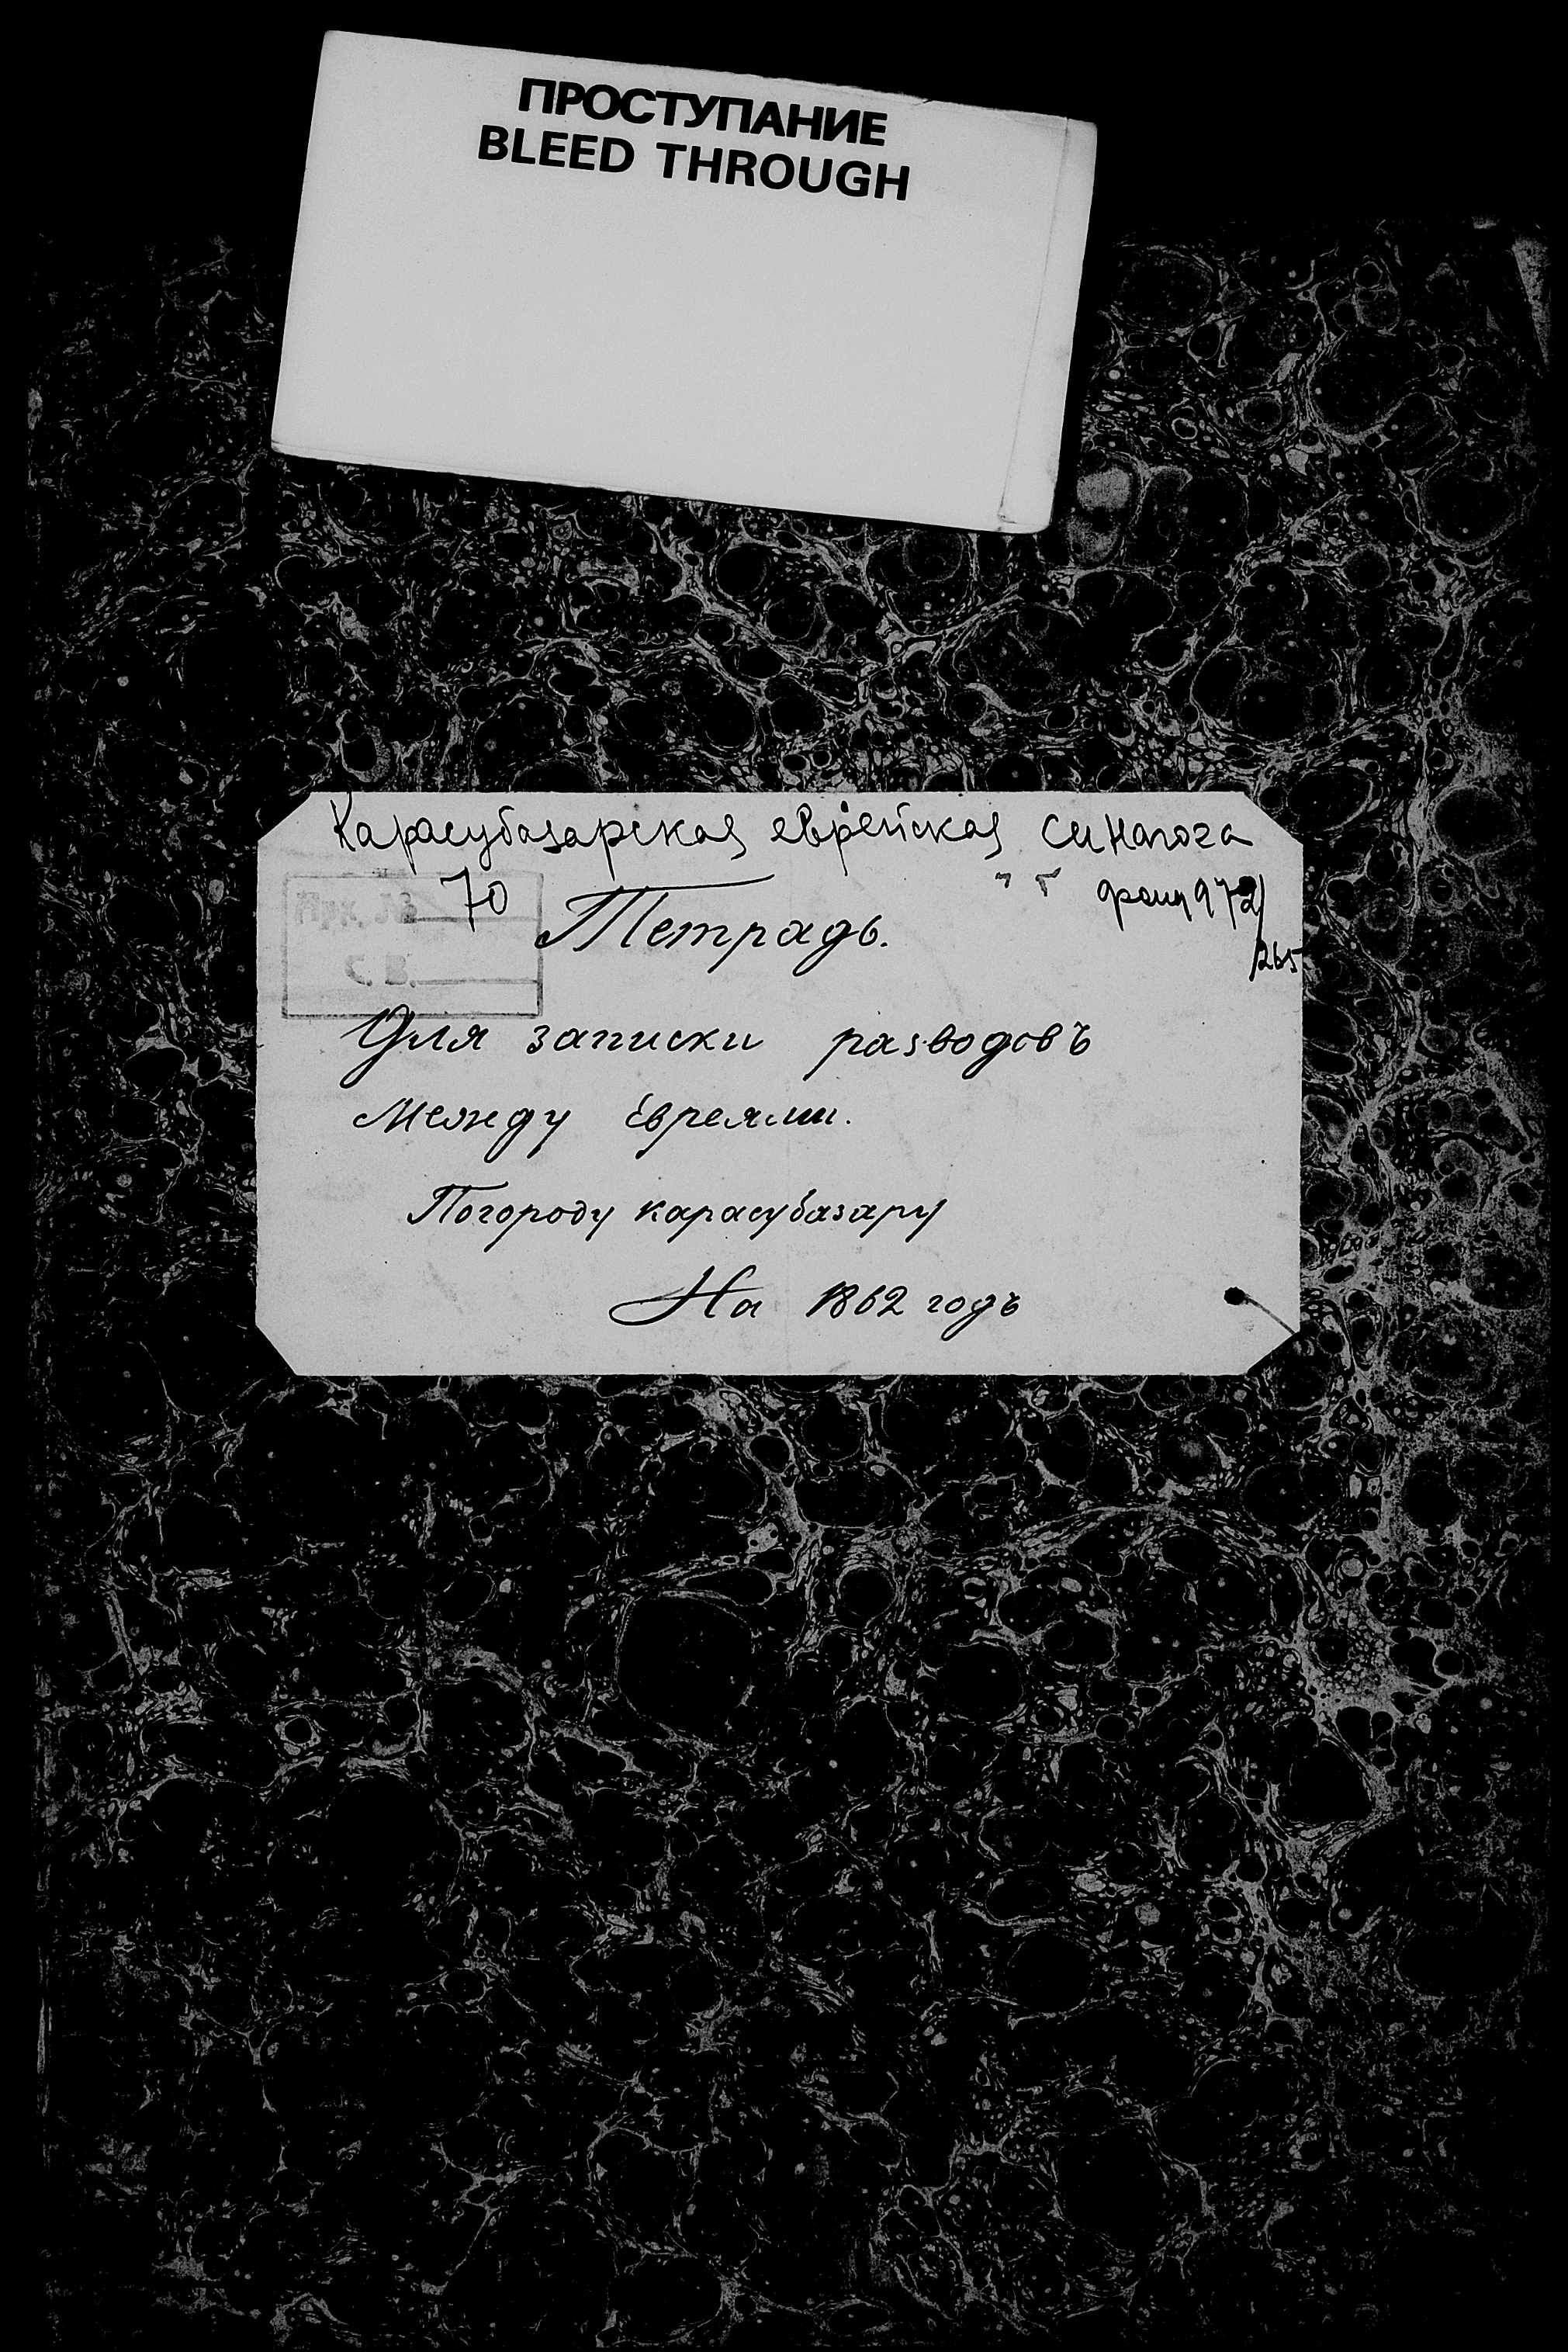 ПРОСТУПАНИЕ
BLEED THROUGH
Карасубазарская еврейская синагога
70
фонд 972/
265
С. В.
Тетрадь.
Для записки разводовъ
Между Евреями.
Погороду карасубазару
На 1862 годъ